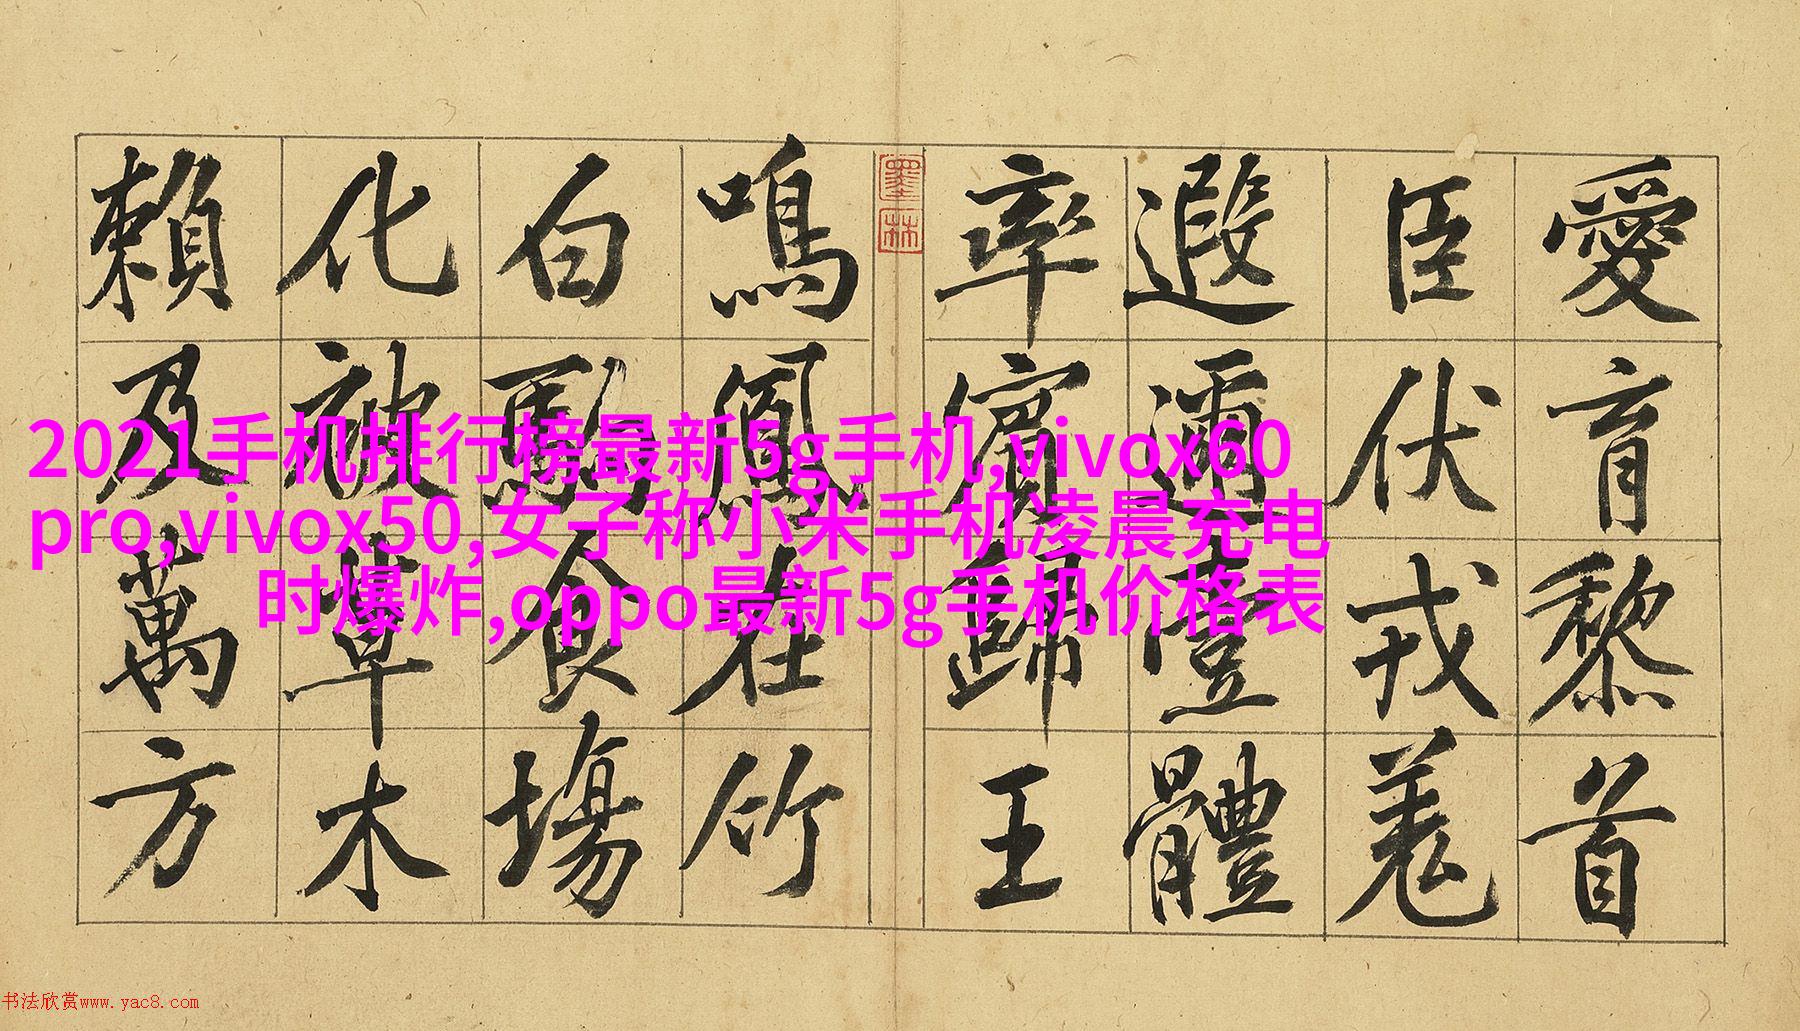 愛育黎首
臣伏戎羌
遐邇壹體
率賓歸王
墨林
鳴鳳在竹
白駒食場
化被草木
賴及萬方
2021手机排行榜最新5g手机,vivox60
pro,vivox50,女子称小米手机凌晨充电
时爆炸,oppo最新5g手机价格表
书法欣赏www.yac8.com